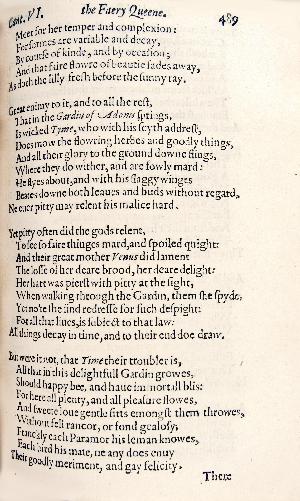 Cant. VI. the Faery Queene. 489
Meet for her temper and complexion:
For formes are variable and decay,
By course of kinde, and by occasion;
And that faire flowre of beautie fades away,
As doth the lilly fresh before the sunny ray.
Great enimy to it, and to all the rest,
That in the Gardin of Adonis springs,
Is wicked Tyme, who with his scyth addrest,
Does mow the flowring herbes and goodly things,
And all their glory to the ground downe flings,
Where they do wither, and are fowly mard:
He flyes about, and with his flaggy winges
Beates downe both leaues and buds without regard,
Ne euer pitty may relent his malice hard.
Yet pitty often did the gods relent,
To see so faire thinges mard, and spoiled quight:
And their great mother Venus did lament
The losse of her deare brood, her deare delight:
Her hart was pierst with pitty at the sight,
When walking through the Gardin, them she spyde,
Yet no'te she find redresse for such despight:
For all that liues, is subiect to that law:
All things decay in time, and to their end doe draw.
But were it not, that Time their troubler is,
All that in this delightfull Gardin growes,
Should happy bee, and haue immortall blis:
For here all plenty, and all pleasure flowes,
And sweete loue gentle fitts emongst them throwes,
Without fell rancor, or fond gealosy;
Franckly each Paramor his leman knowes,
Each bird his mate, ne any does enuy
Their goodly meriment, and gay felicity.
There